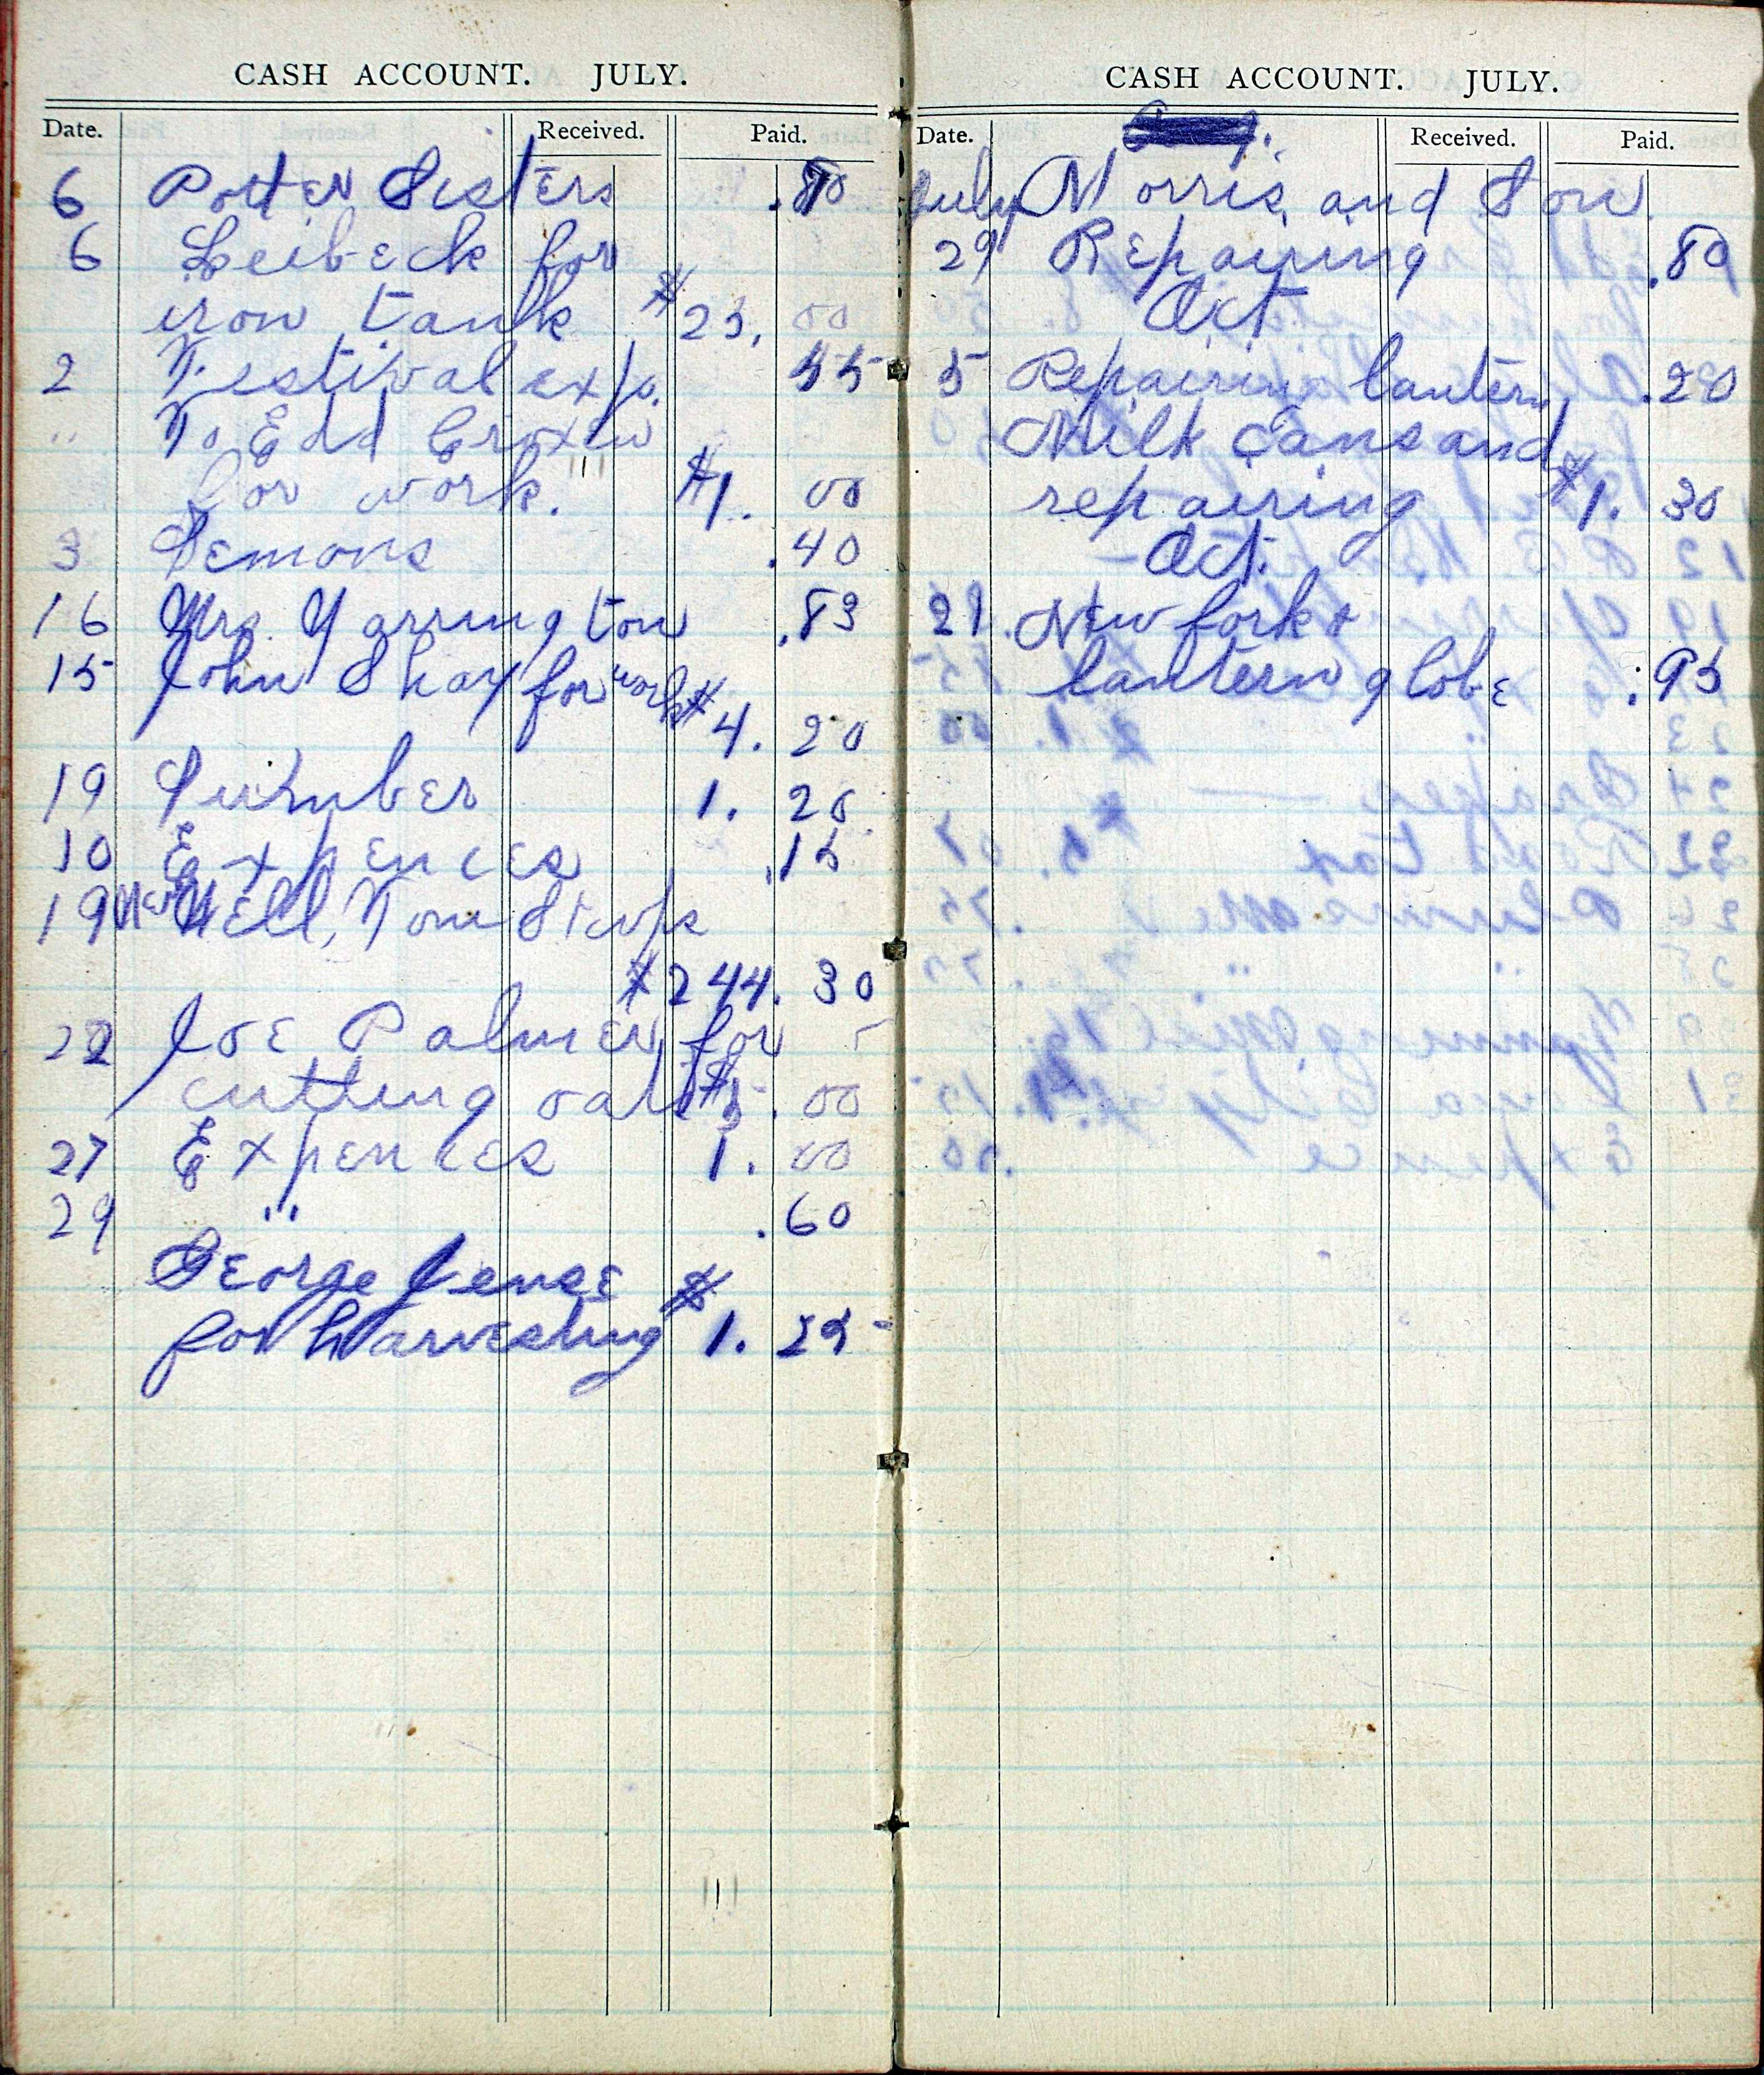 CASH ACCOUNT. JULY.
Date. Received. Paid.
6 Potter Sisters
6 Leibeck for
iron tank $23. 00
2 Festival exp. 55
" To Edd
for work. $1. 00
3 Lemons .40
16 Mrs. Yarrington .83
15 John Shay for work
$4. 20
19 1. 20
10 Expences .15
19 New Well, Tom
$244. 30
Joe Palmer for
cutting oats $5. 00
27 Expences 1. 00
29 " .60
George Jense
for harvesting $1. 25
CASH ACCOUNT. JULY.
Date. Received. Paid.
July Morris and Son
29 Repairing .80
Oct
5 Repairing lantern .20
Milk Cans and
repairing $1. 30
Oct.
21 New fork &
lantern globe .95